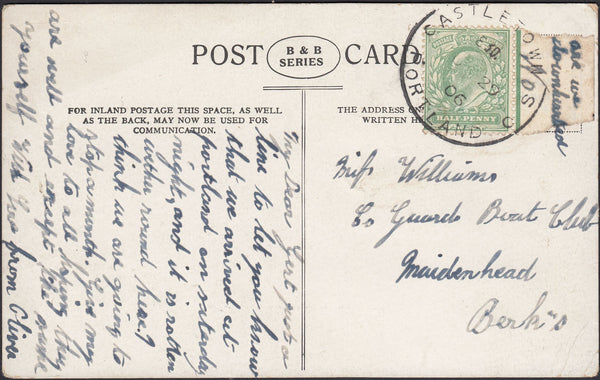 POST CARD
B & B
SERIES
FOR INLAND POSTAGE THIS SPACE, AS WELL
AS THE BACK, MAY NOW BE USED FOR
COMMUNICATION.
THE ADDRESS ON
WRITTEN HE
CASTLETOWN
PORTLAND
S.O.
29
06
HALF-PENNY
are we
downhearted
Miss Williams
Co Guards Boat Club
Maidenhead
Berks
My Dear Gert just a
line to let you know
that we arrived at
Portland on saturday
night, and it is rotten
weather round here I
think we are going to
stop a month give my
love to all hoping they
are well and except the same
yourself with love from Oliver